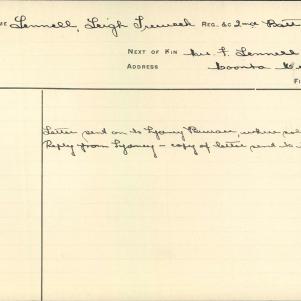 ME Fennell, Leigh Treweek REG. &C 2nd Batt
NEXT OF KIN Mr F. Fennell
ADDRESS
FI
Letter sent on to Sydney Bureau, where sol
Reply from Sydney - copy of letter sent to